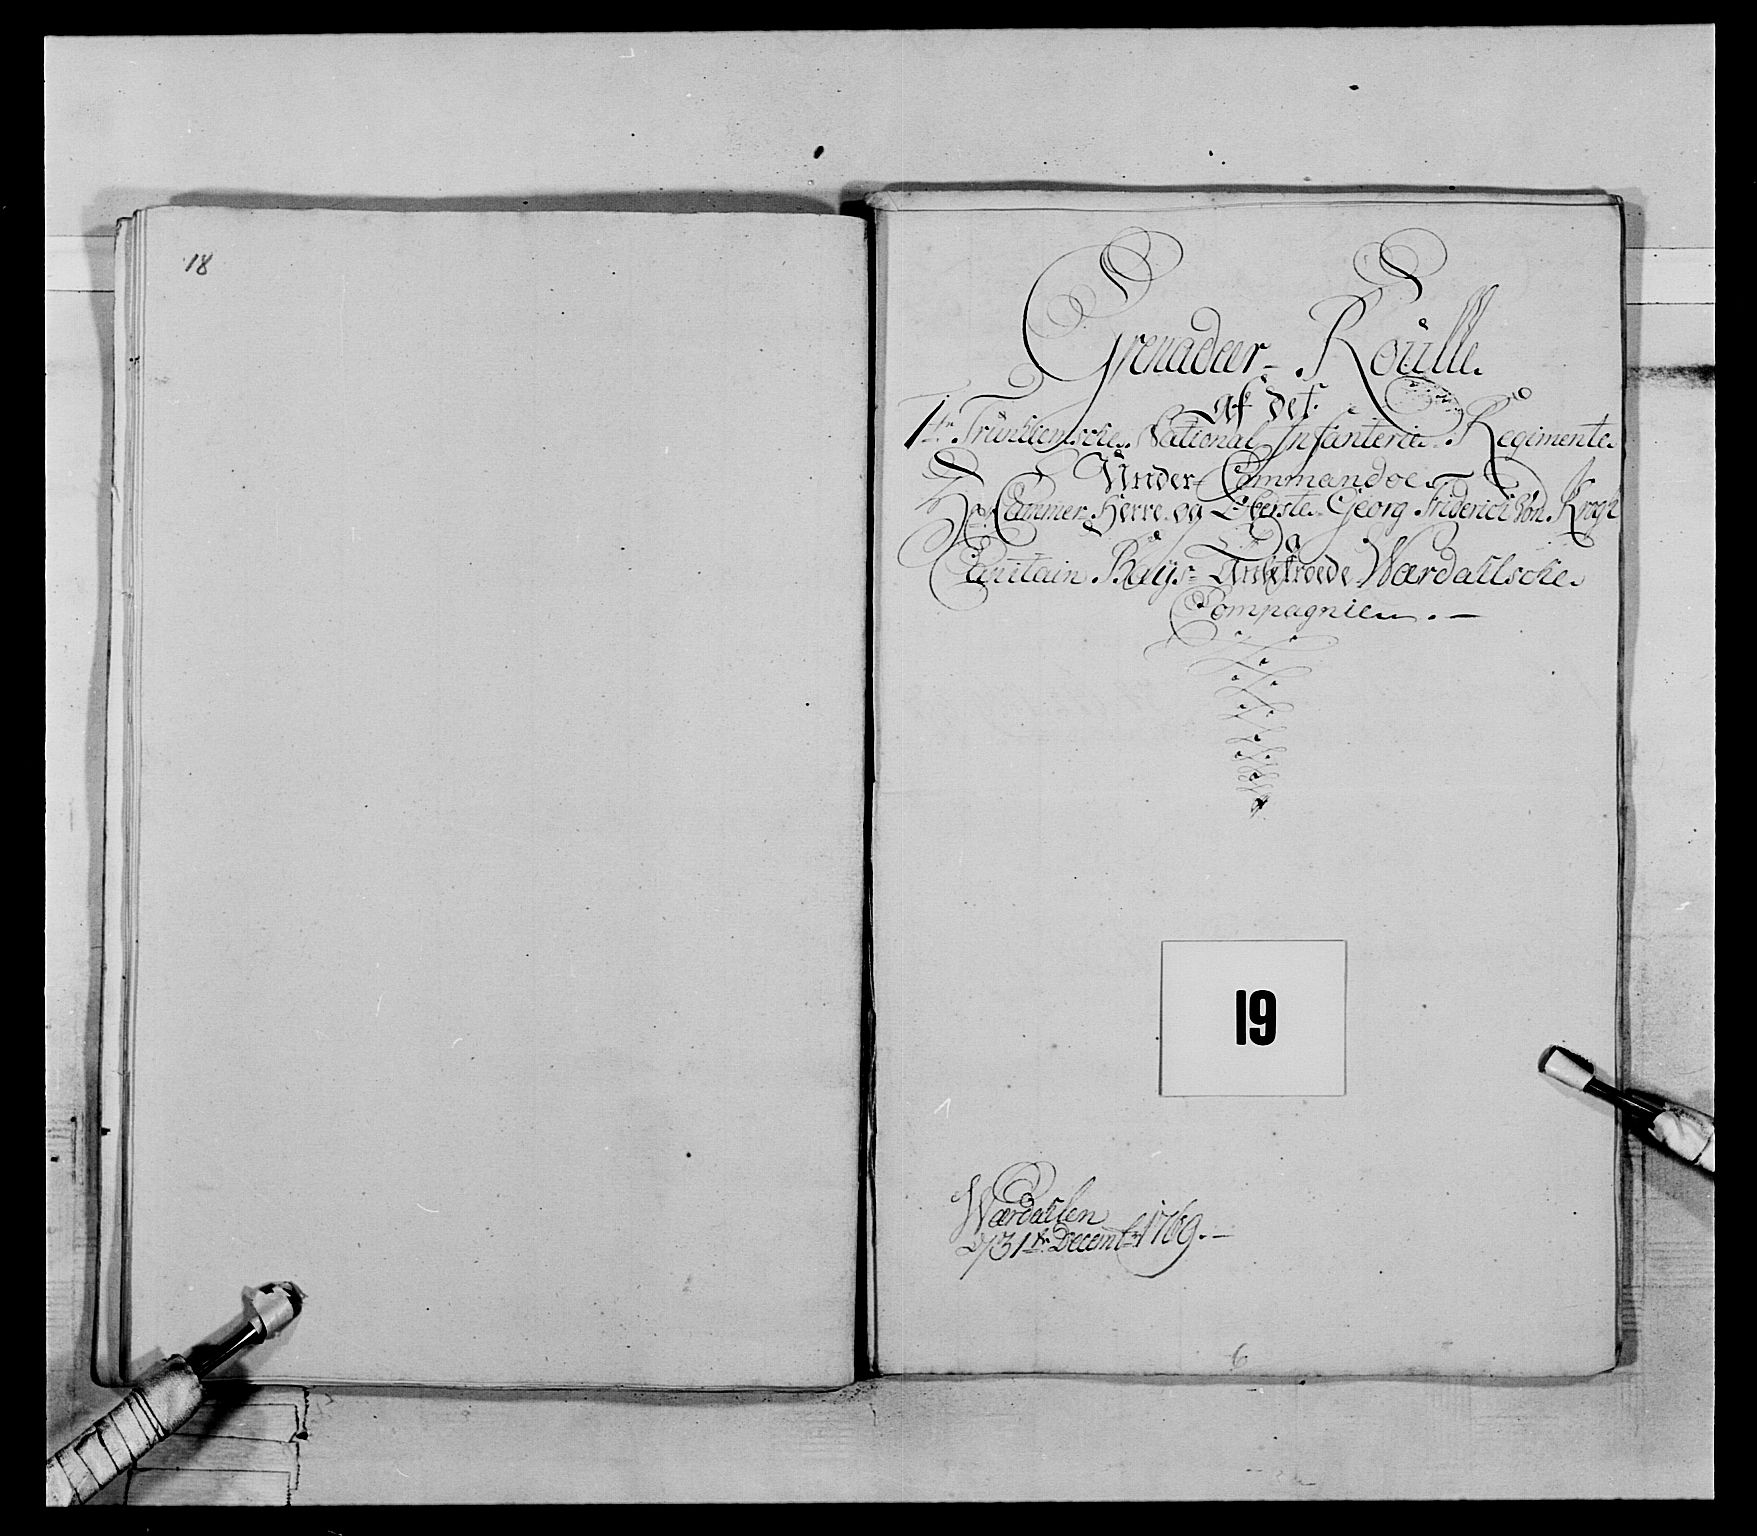 18
Grenadeer-Roülle
af det
1te Trünhiemske National Infanterie Regimente
Ünder Commandoe
Hr Cammer-Herre og Oberste Georg Friderich Von Krogh
Capitain Rays Anbetroede Wærdahlske
Compagnie. —
19
Wærdahlen
d 31te Decembr 1769. —
6